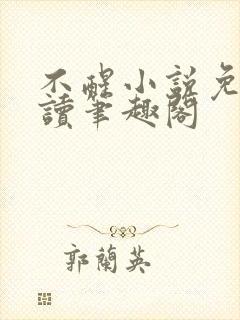 不醒小説免
讀筆趣閣
郭蘭英